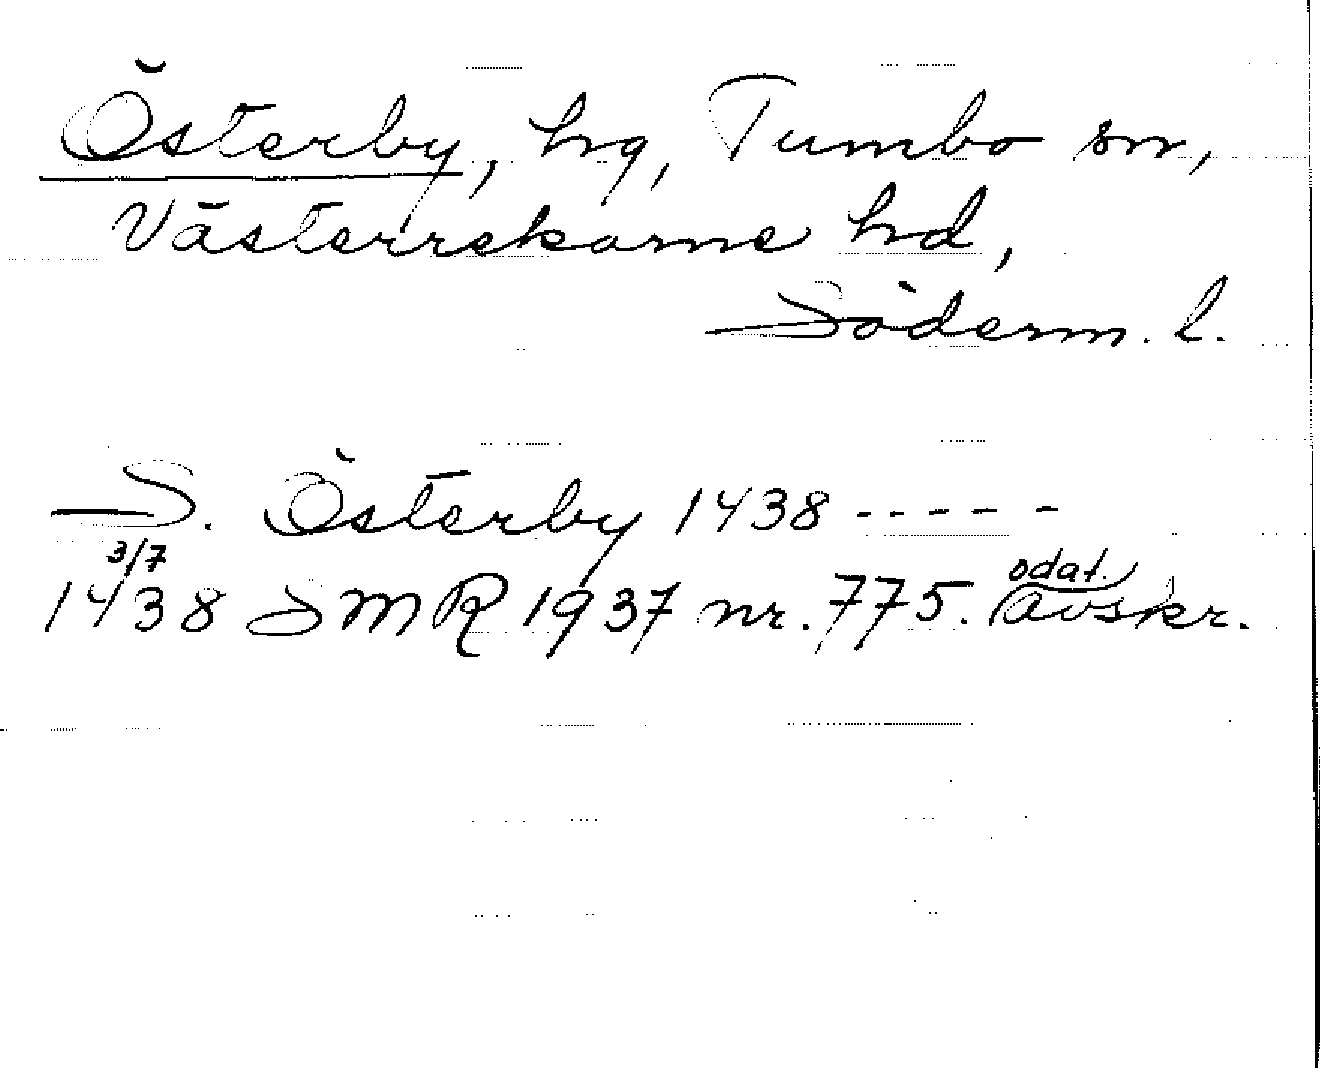 Österby, hg, Tumbo sn,
Västerrekarne hd,
Söderm. l.
S. Österby 1438 -----
3/7
1438 SMR 1937 nr. 775. odat. avskr.